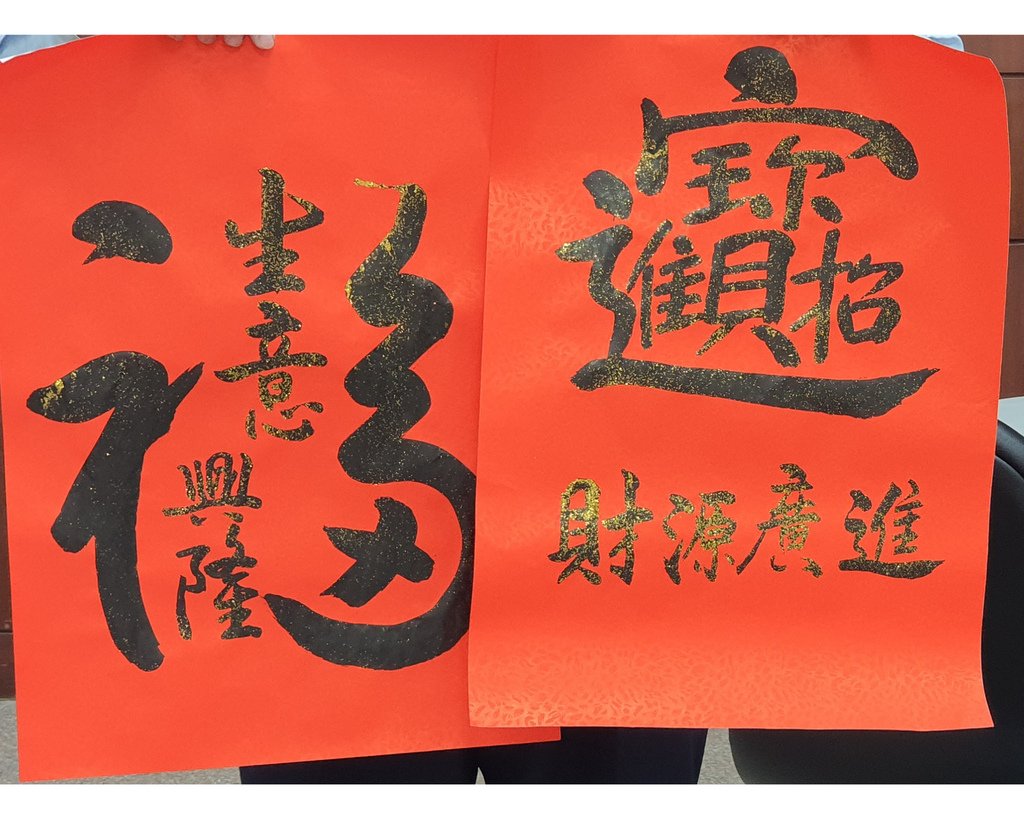 福
生意興隆
招財進寶
財源廣進